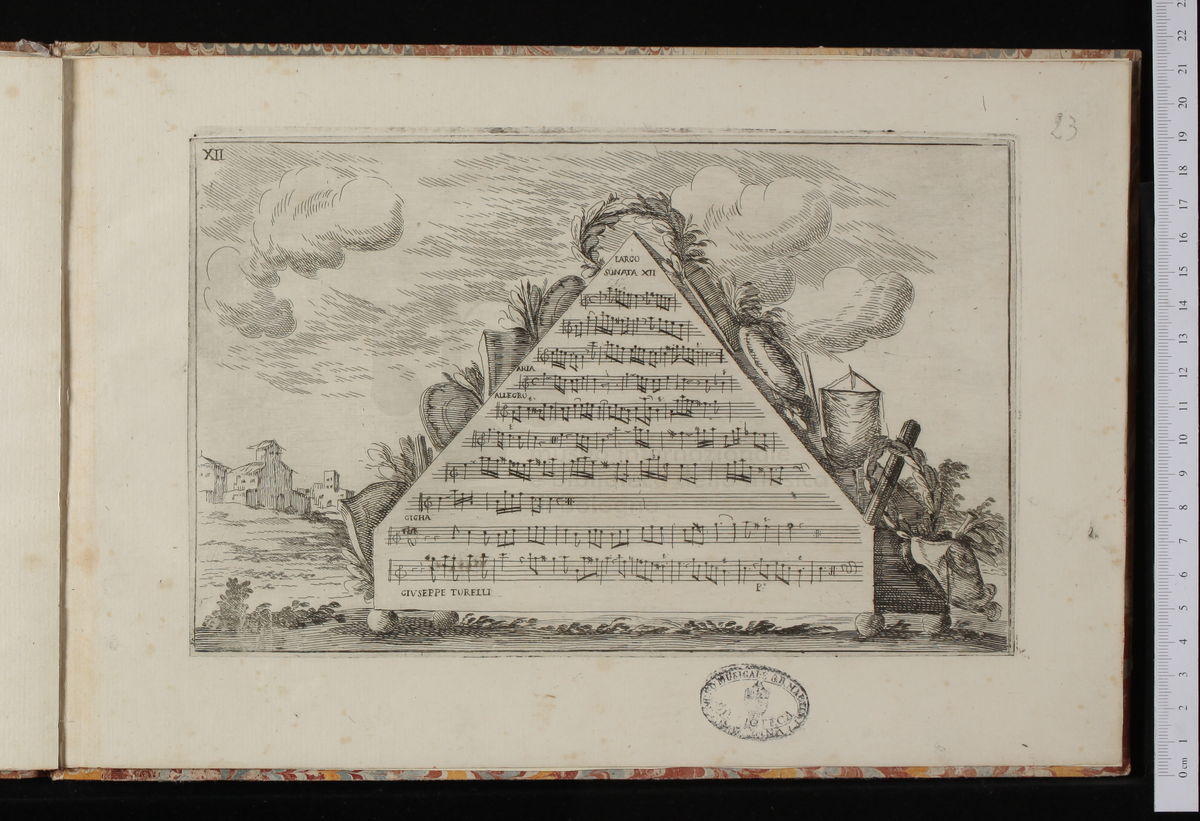 XII
23
LARGO
SONATA XII
ARIA
ALLEGRO
GIGHA
GIVSEPPE TORELLI
P.º
0 cm 1 2 3 4 5 6 7 8 9 10 11 12 13 14 15 16 17 18 19 20 21 22